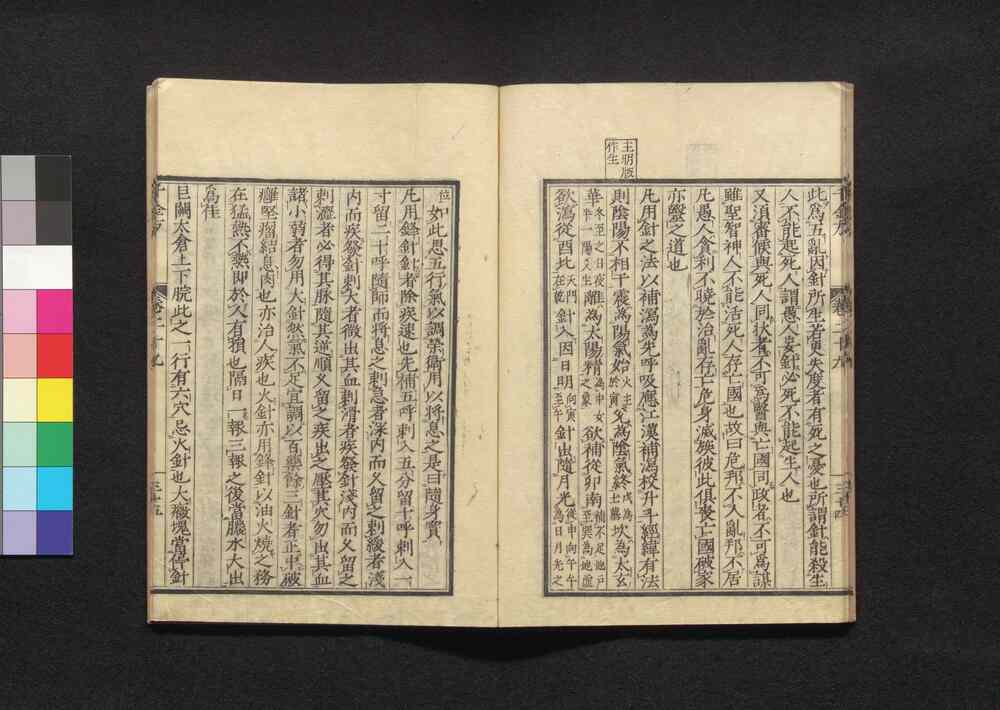 王朔版
作生
此為五亂因針所生若更失度者有死之憂也所謂針能殺生
人不能起死人謂愚人妄針必死不能起生人也
又須審候與死人同狀者不可為醫與亡國同政者不可為謀
雖聖智神人不能活死人存亡國也故曰危邦不入亂邦不居
凡愚人貪利不曉於治亂存亡危身滅族彼此俱喪亡國破家
亦醫之道也
凡用針之法以補瀉為先呼吸應江漢補瀉校升斗經緯有法
則陰陽不相干震為陽氣始火生於寅兌為陰氣終戊為土墓坎為太玄
華冬至之日夜半一陽爻生離為太陽精為中女之象欲補從卯南補不足地戶至巽為地虛
欲瀉從酉北天門在乾針入因日明向寅至午針出隨月光後申向午午為日月光之
位如此思五行氣以調榮衛用以將息之是曰隨身寶
凡用鋒針針者除疾速也先補五呼刺入五分留十呼刺入一
寸留二十呼隨師而將息之刺急者深內而久留之刺緩者淺
內而疾發針刺大者微出其血刺滑者疾發針淺內而久留之
刺澀者必得其脉隨其逆順久留之疾出之壓其穴勿出其血
諸小弱者勿用大針然氣不足宜調以百藥餘三針者正中破
癰堅瘤結息肉也亦治人疾也火針亦用鋒針以油火燒之務
在猛熱不熱即於人有損也隔日一報三報之後當膿水大出
為佳
巨闕太倉上下脘此之一行有六穴忌火針也大癥塊當停針
千金方
卷二十九
三十四
千金方
卷二十九
三十五